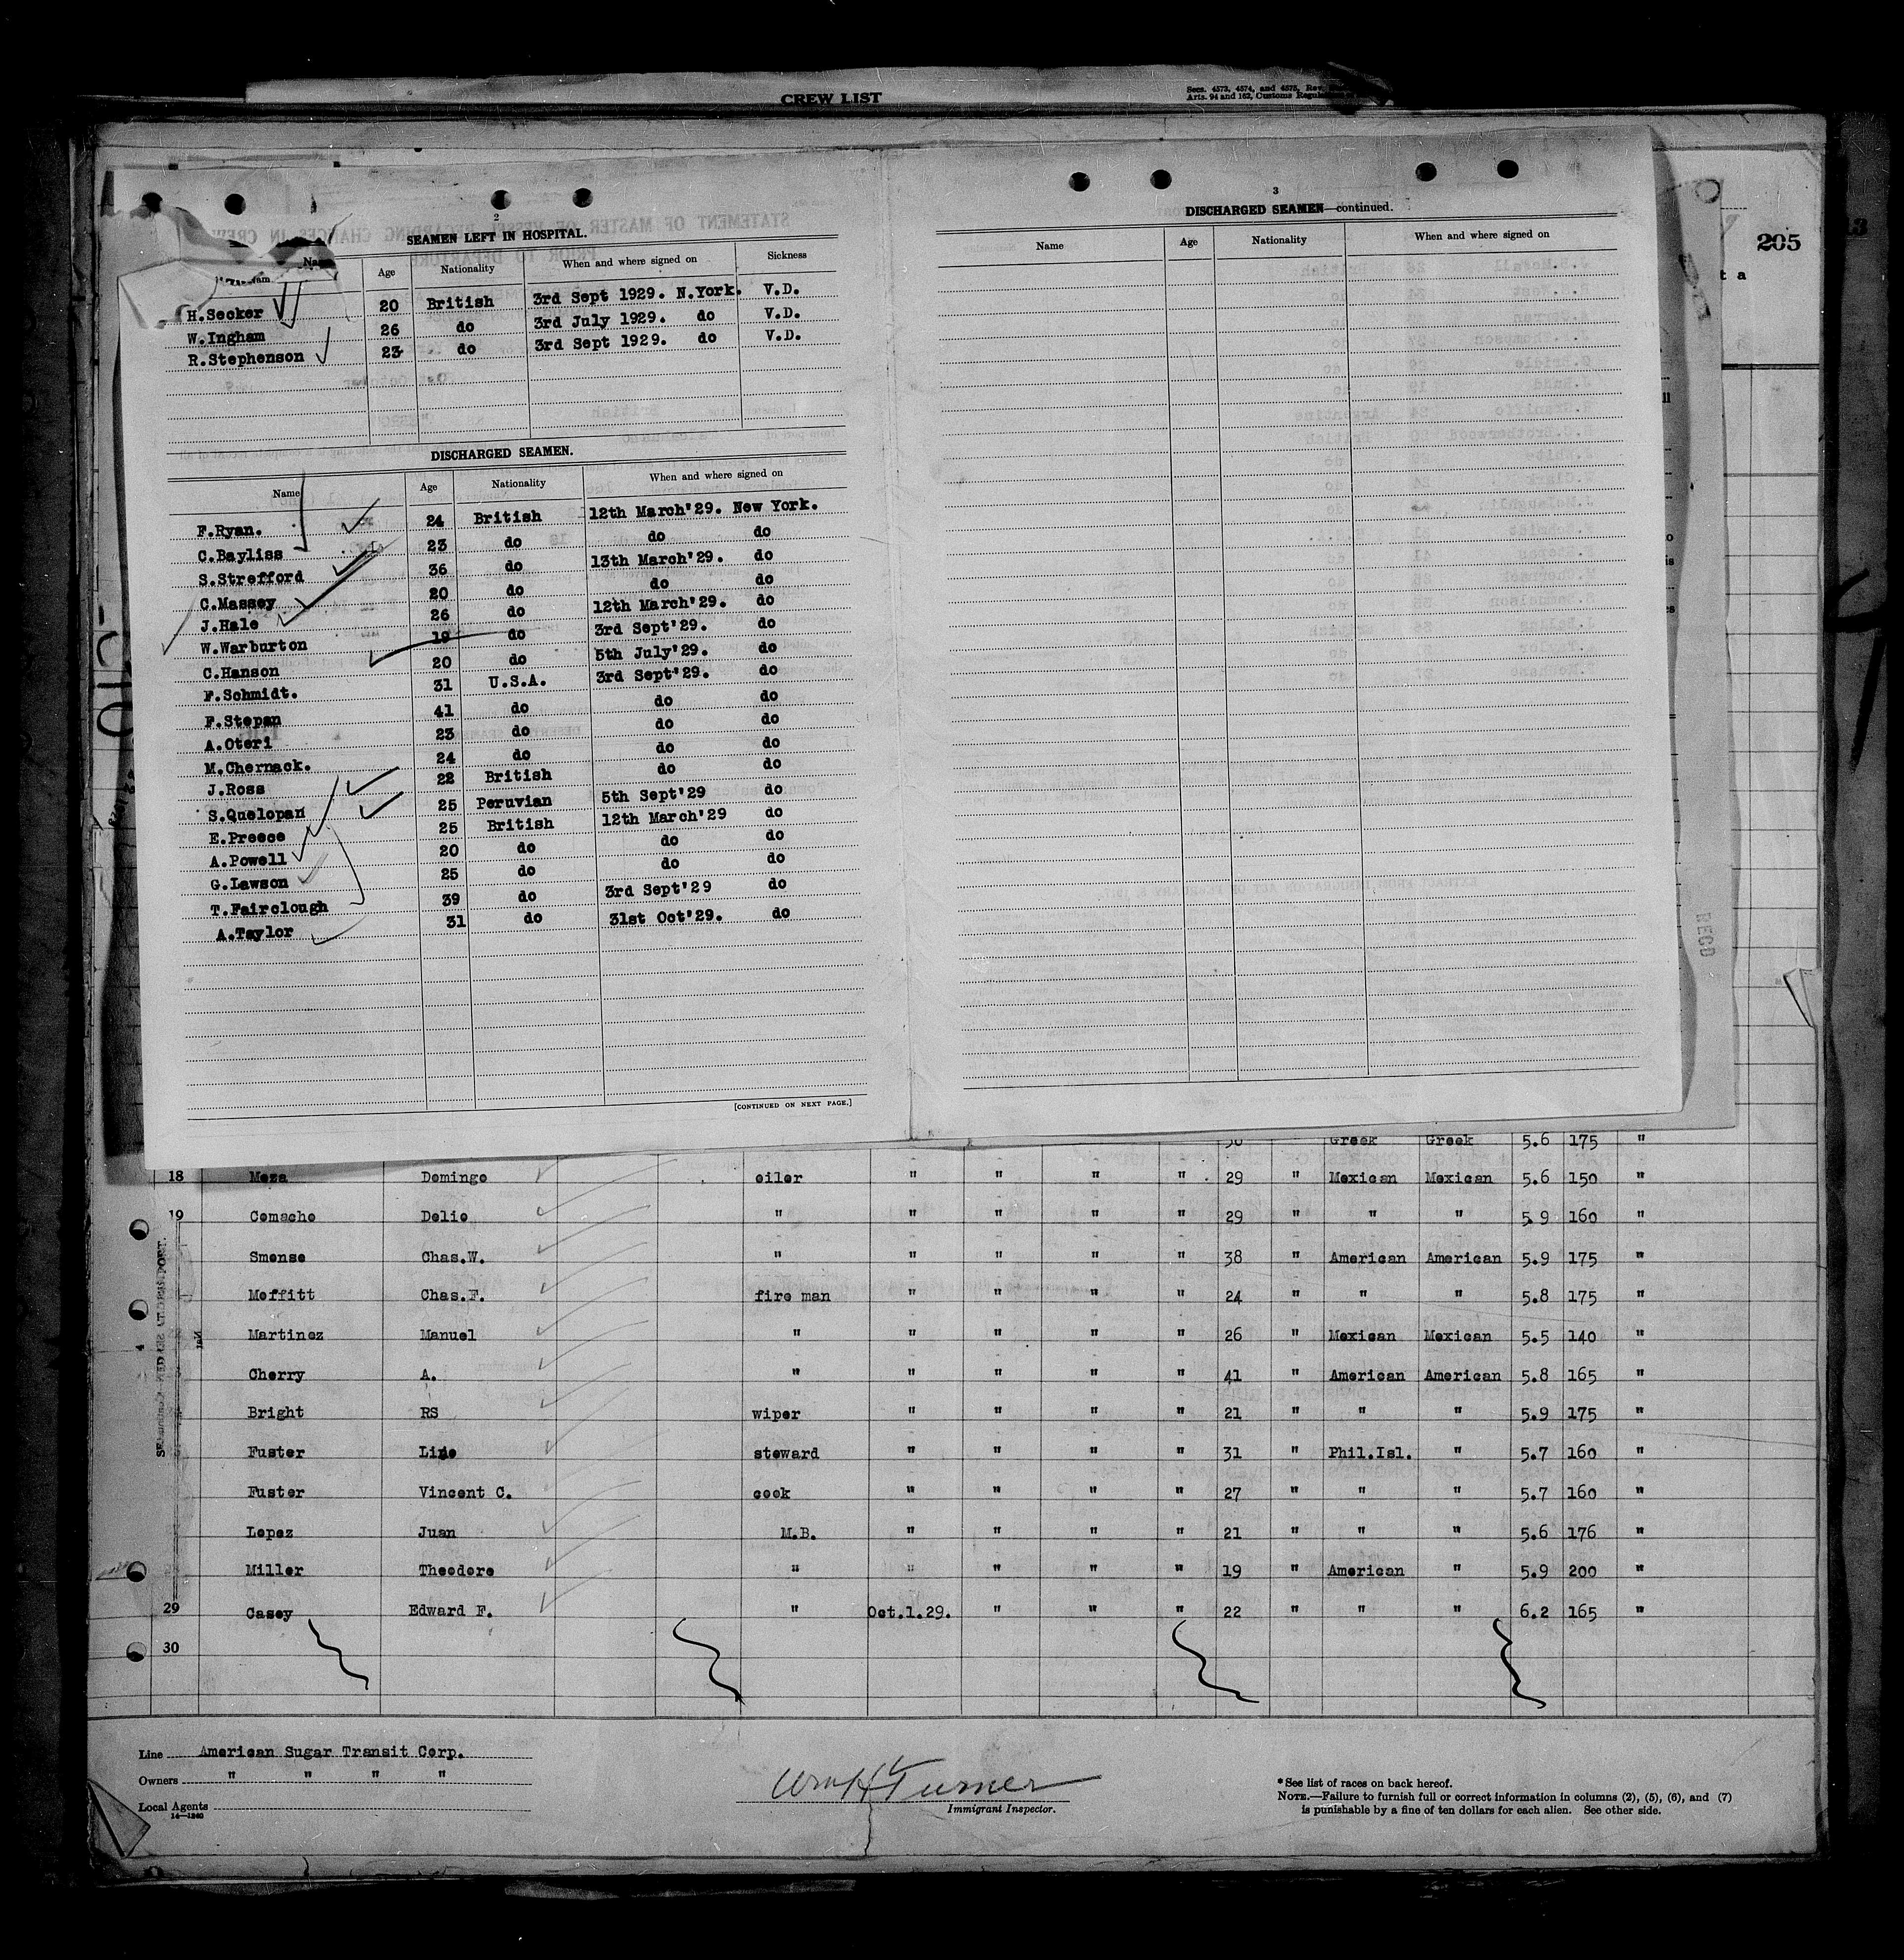 CREW LIST
Secs. 4573, 4574, and 4575, Rev.
Arts. 94 and 162, Customs
205
2
SEAMEN LEFT IN HOSPITAL.
Name Age Nationality When and where signed on Sickness
H.Secker 20 British 3rd Sept 1929. N.York. V.D.
W.Ingham 26 do 3rd July 1929. do V.D.
R.Stephenson 23 do 3rd Sept 1929. do V.D.
DISCHARGED SEAMEN.
Name Age Nationality When and where signed on
F.Ryan. 24 British 12th March'29. New York.
C.Bayliss 23 do do do
S.Strefford 36 do 13th March'29. do
C.Massey 20 do do do
J.Hale 26 do 12th March'29. do
W.Warburton 19 do 3rd Sept'29. do
C.Hanson 20 do 5th July'29. do
F.Schmidt. 31 U.S.A. 3rd Sept'29. do
F.Stepan 41 do do do
A.Oteri 23 do do do
M.Chernack. 24 do do do
J.Ross 22 British do do
S.Quelopan 25 Peruvian 5th Sept'29 do
E.Preece 25 British 12th March'29 do
A.Powell 20 do do do
G.Lawson 25 do do do
T.Fairclough 39 do 3rd Sept'29 do
A.Taylor 31 do 31st Oct'29. do
[CONTINUED ON NEXT PAGE.]
3
DISCHARGED SEAMEN—continued.
Name Age Nationality When and where signed on
RECD
Greek Greek 5.6 175 "
18 Meza Domingo oiler " " " " 29 " Mexican Mexican 5.6 150 "
19 Comacho Delio " " " " " 29 " " " 5.9 160 "
Smense Chas.W. " " " " " 38 " American American 5.9 175 "
Moffitt Chas.F. fire man " " " " 24 " " " 5.8 175 "
Martinez Manuel " " " " " 26 " Mexican Mexican 5.5 140 "
Cherry A. " " " " " 41 " American American 5.8 165 "
Bright RS wiper " " " " 21 " " " 5.9 175 "
Fuster steward " " " " 31 " Phil.Isl. " 5.7 160 "
Fuster Vincent C. cook " " " " 27 " " " 5.7 160 "
Lopez Juan M.B. " " " " 21 " " " 5.6 176 "
Miller Theodore " " " " " 19 " American " 5.9 200 "
29 Casey Edward F. " Oct.1.29. " " " 22 " " " 6.2 165 "
30
Line American Sugar Transit Corp.
Owners " " " "
Local Agents
14—1240
Wm H Turner
Immigrant Inspector.
*See list of races on back hereof.
NOTE.—Failure to furnish full or correct information in columns (2), (5), (6), and (7)
is punishable by a fine of ten dollars for each alien. See other side.